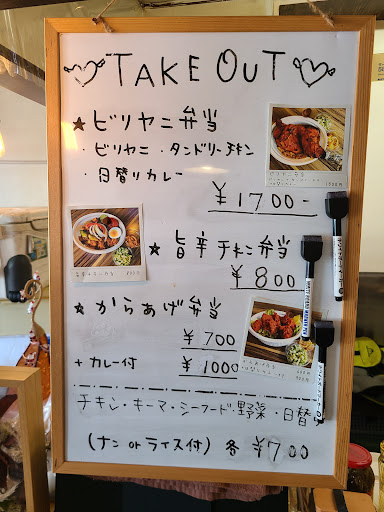 TAKE OUT
★ ビリヤニ弁当
・ビリヤニ ・タンドリーチキン
・日替りカレー
¥1700-
★ 旨辛チキン弁当
¥800
★ からあげ弁当
¥700
+カレー付 ¥1000
チキン・キーマ・シーフード・野菜・日替
(ナン or ライス付) 各 ¥700